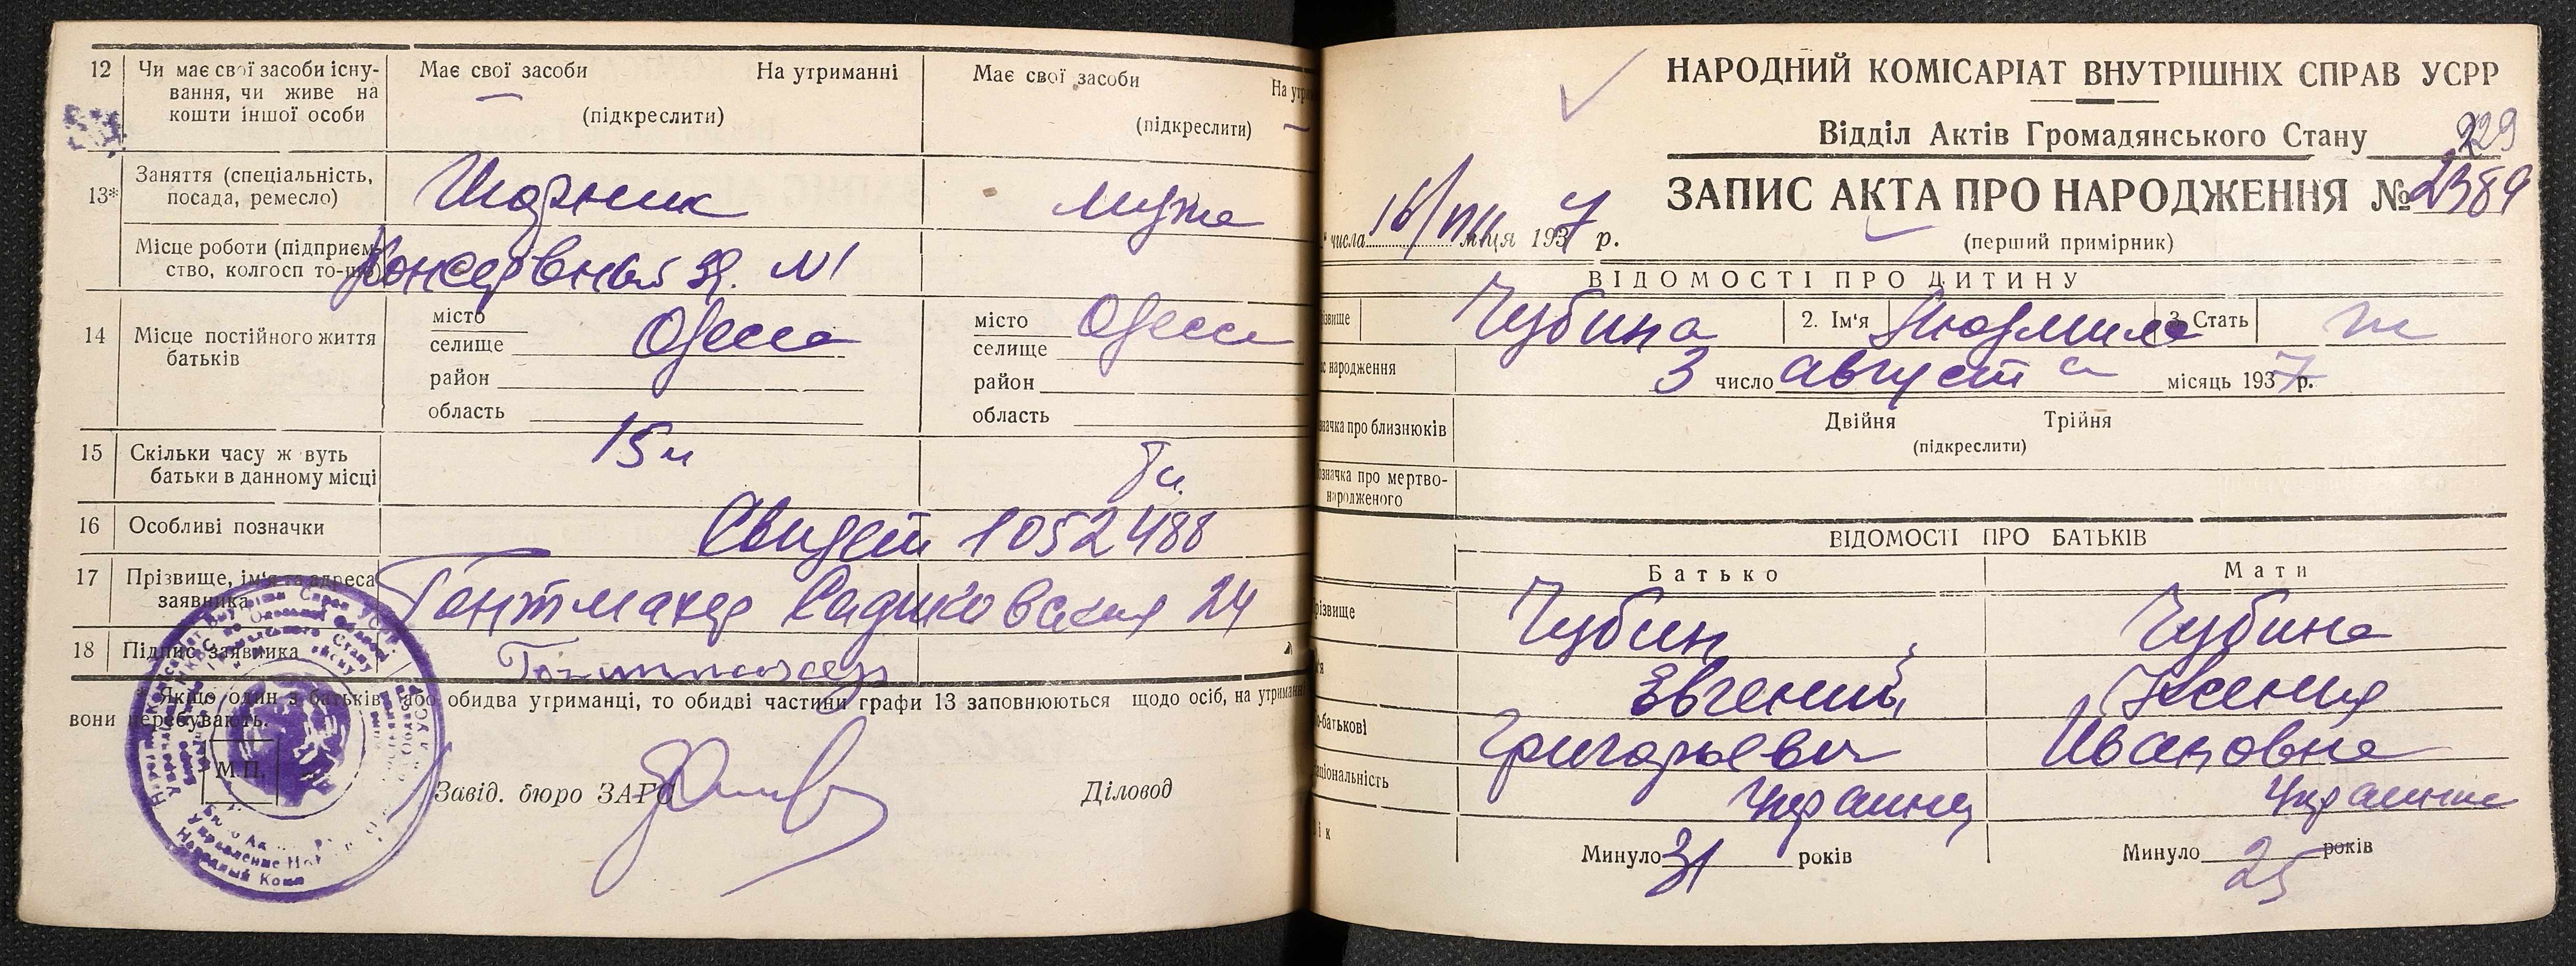 12 Чи має свої засоби існу-
вання, чи живе на
кошти іншої особи
Має свої засоби На утриманні
(підкреслити)
Має свої засоби На утри
(підкреслити)
13* Заняття (спеціальність,
посада, ремесло)
Шорник
мужа
Місце роботи (підприєм-
ство, колгосп то-що)
Консервный з. N1
14 Місце постійного життя
батьків
місто
селище Одесса
район
область
місто Одесса
селище
район
область
15 Скільки часу ж вуть
батьки в данному місці
15 л
16 Особливі позначки
Свидет 1052488
17 Прізвище, ім'я та адреса
заявника
Гонтмахер Садиковская 24
18 Підпис заявника
Гонтмахер
* Якщо один з батьків або обидва утриманці, то обидві частини графи 13 заповнюються щодо осіб, на утриманні
вони перебувають.
М.П.
Завід. бюро ЗАГС Діловод
НАРОДНИЙ КОМІСАРІАТ ВНУТРІШНІХ СПРАВ УСРР
Відділ Актів Громадянського Стану
229
ЗАПИС АКТА ПРО НАРОДЖЕННЯ № 2389
числа 16/VIII м-ця 1937 р.
(перший примірник)
ВІДОМОСТІ ПРО ДИТИНУ
ізвище Чубина 2. Ім'я Людмила 3. Стать ж
ас народження 3 число августа місяць 1937 р.
значка про близнюків
Двійня Трійня
(підкреслити)
означка про мертво-
народженого
ВІДОМОСТІ ПРО БАТЬКІВ
Батько Мати
різвище Чубин Чубина
'я Евгений Ксения
о-батькові Григорьевич Ивановна
аціональність Украинец Украинка
ік Минуло 31 років Минуло 25 років